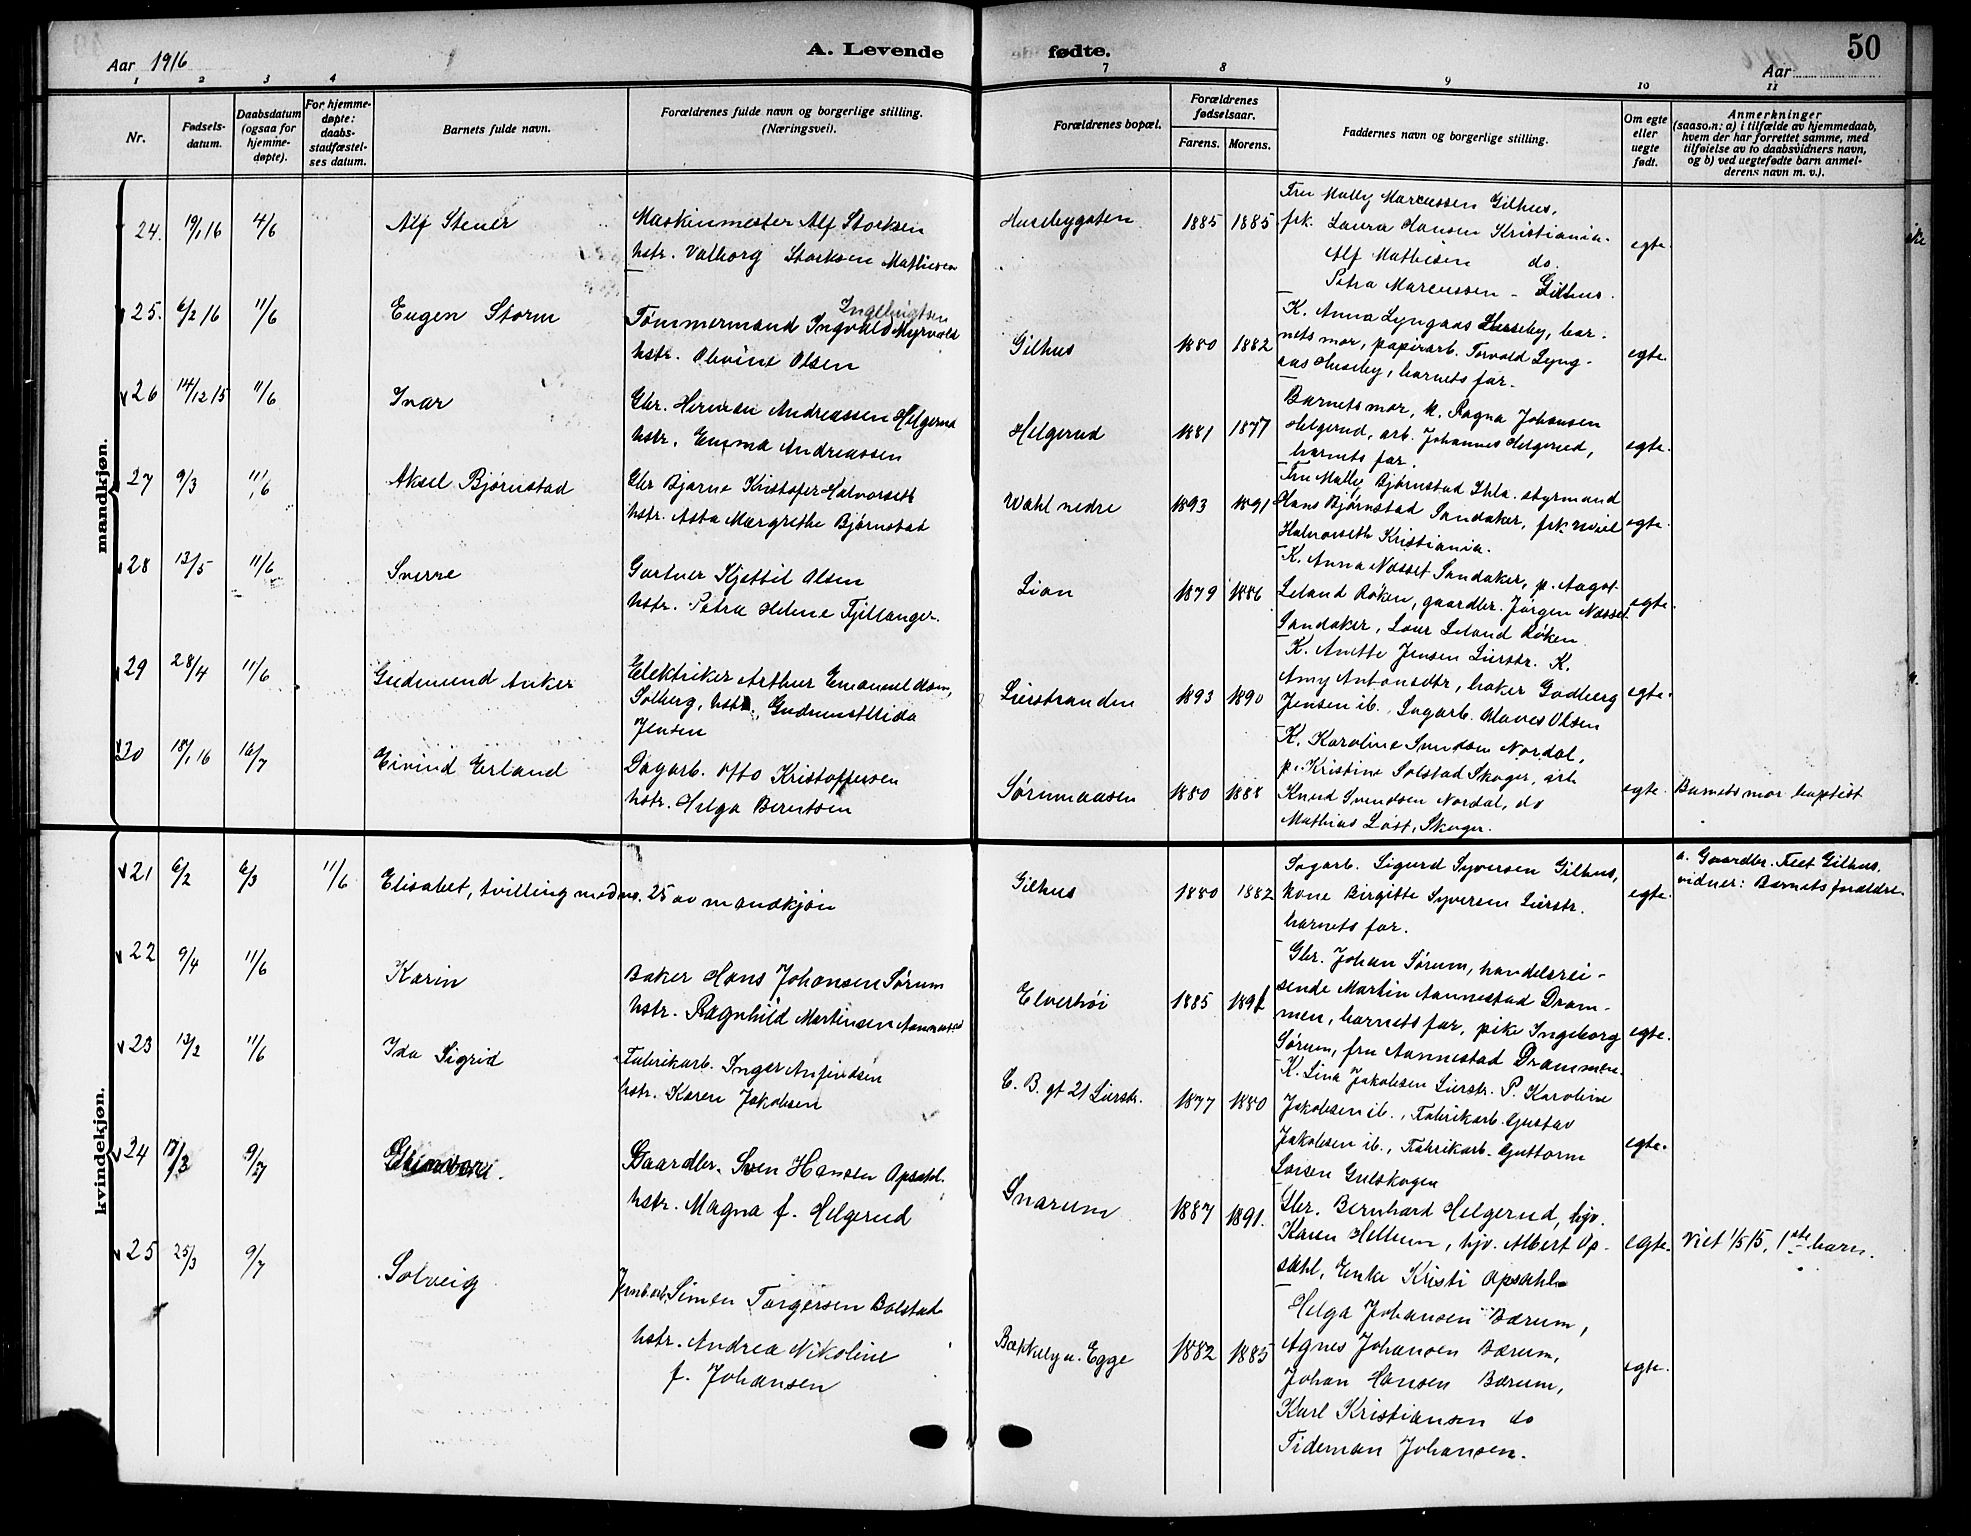 Aar 1916
A. Levende fødte.
50
Aar
1 2 3 4 7 8 9 10 11
Nr.
Fødsels-
datum.
Daabsdatum
(ogsaa for
hjemme-
døpte).
For hjemme-
døpte:
daabs-
stadfæstel-
ses datum.
Barnets fulde navn.
Forældrenes fulde navn og borgerlige stilling.
(Næringsvei).
Forældrenes bopæl.
Forældrenes
fødselsaar.
Farens. Morens.
Faddernes navn og borgerlige stilling.
Om egte
eller
uegte
født.
Anmerkninger
(saasom: a) i tilfælde av hjemmedaab,
hvem der har forrettet samme, med
tilføielse av to daabsvidners navn,
og b) ved uegtefødte barn anmel-
derens navn m. v.).
mandkjøn.
24. 19/1 16 4/6
Alf Stener
Maskinmester Alf Storksen
hstr. Valborg Storksen Mathiesen
Husebygaten
1885 1885
Fru Mally Marcussen Gilhus,
frk. Laura Hansen Kristiania.
Alf Mathisen do.
Petra Marcussen - Gilhus.
egte.
25. 6/2 16 11/6
Eugen Storm
Ingebrigtsen
Tømmermand Ingvald Myrvold
hstr. Olevine Olsen
Gilhus
1880 1882
K. Anna Lyngaas Huseby, bar-
nets mor, papirarb. Torvald Lyng-
aas Huseby, barnets far.
egte.
26 14/12 15 11/6
Ivar
Gbr. Herman Andreassen Helgerud
hstr. Emma Andreassen
Helgerud
1881 1877
Barnets mor, k. Ragna Johansen
Helgerud, arb. Johannes Helgerud,
barnets far.
egte.
27 9/3 11/6
Aksel Bjørnstad
Gbr Bjarne Kristofer Halvorseth
hstr. Asta Margrethe Bjørnstad
Wahl nedre
1893 1891
Fru Mally Bjørnstad Thla. styrmand
Hans Bjørnstad Sandaker, frk
Halvorseth Kristiania.
egte.
28 13/5 11/6
Sverre
Gartner Kjettil Olsen
hstr. Petra Helene Fjellanger.
Lian
1879 1886
K. Anna Næsset Sandaker, p. Aagot
Leland Røken, gaardbr. Jørgen Næsset
Sandaker, Laur Leland Røken
egte.
29 28/4 11/6
Gudmund Anker
Elektriker Arthur Emanuel
Solberg, hstr. Gudrun
Jensen
Lierstranden
1893 1890
K. Anette Jensen Lierstr. K.
Amy Antonsdtr, baker Godberg
Jensen ib. Sagarb. Olaves Olsen
egte.
30 18/1 16 16/7
Eivind Erland
Dagarb. Otto Kristoffersen
hstr. Helga Berntsen
Sørumaasen
1880 1888
K. Karoline Svendsen Nordal,
p. Kristine Solstad Skoger, arb
Knud Svendsen Nordal, do
Mathias Løst, Skoger.
egte.
Barnets mor baptist
kvindekjøn.
21 6/2 6/3 11/6
Elisabet, tvilling med no. 25 av mandkjøn
Gilhus
1880 1882
Sagarb. Sigurd Syversen Gilhus,
kone Birgitte Syversen Lierstr.
barnets far.
egte.
a. Gaardbr. Fleet Gilhus,
vidner: Barnets forældre
22 9/4 11/6
Karin
Baker Hans Johansen Sørum
hstr. Ragnhild Martinsen Aannestad
Elverhøi
1885 1891
Gbr. Johan Sørum, handelsrei-
sende Martin Aannestad Dram-
men, barnets far, pike Ingeborg
Sørum, fru Aannestad Drammen.
egte.
23 13/2 11/6
Ida Sigrid
Fabrikarb. Inger Anfindsen
hstr. Karen Jakobsen
C. B. gt 21 Lierstr.
1877 1880
K. Lina Jakobsen Lierstr. P. Karoline
Jakobsen ib., Fabrikarb. Gustav
Jakobsen ib., Fabrikarb. Guttorm
Larsen Gulskogen
egte.
24 9/7
Gaardbr. Sven Hansen Opsahl.
hstr. Magna f. Helgerud
Snarum
1887 1891.
Gbr. Bernhard Helgerud, hjv.
Karen Hellum, hjv. Albert Op-
sahl, Enke Kristi Opsahl
egte.
Viet 1/5 15, 1ste barn.
25 25/3 9/7
Solveig
Jernb.arb. Simen Torgersen Bolstad
hstr. Andrea Nikoline
f. Johansen
Bakkely u. Egge
1882 1885
Helga Johansen Bærum,
Agnes Johansen Bærum,
Johan Hansen Bærum,
Karl Kristiansen do
Tideman Johansen.
egte.